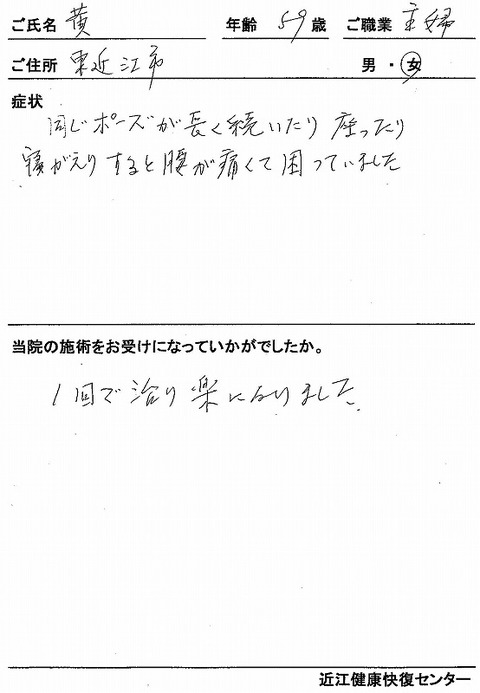 ご氏名 黄 年齢 59 歳 ご職業 主婦
ご住所 東近江市 男・女
症状
同じポーズが長く続いたり 座ったり
寝がえりすると腰が痛くて困っていました
当院の施術をお受けになっていかがでしたか。
1回で治り楽になりました。
近江健康快復センター